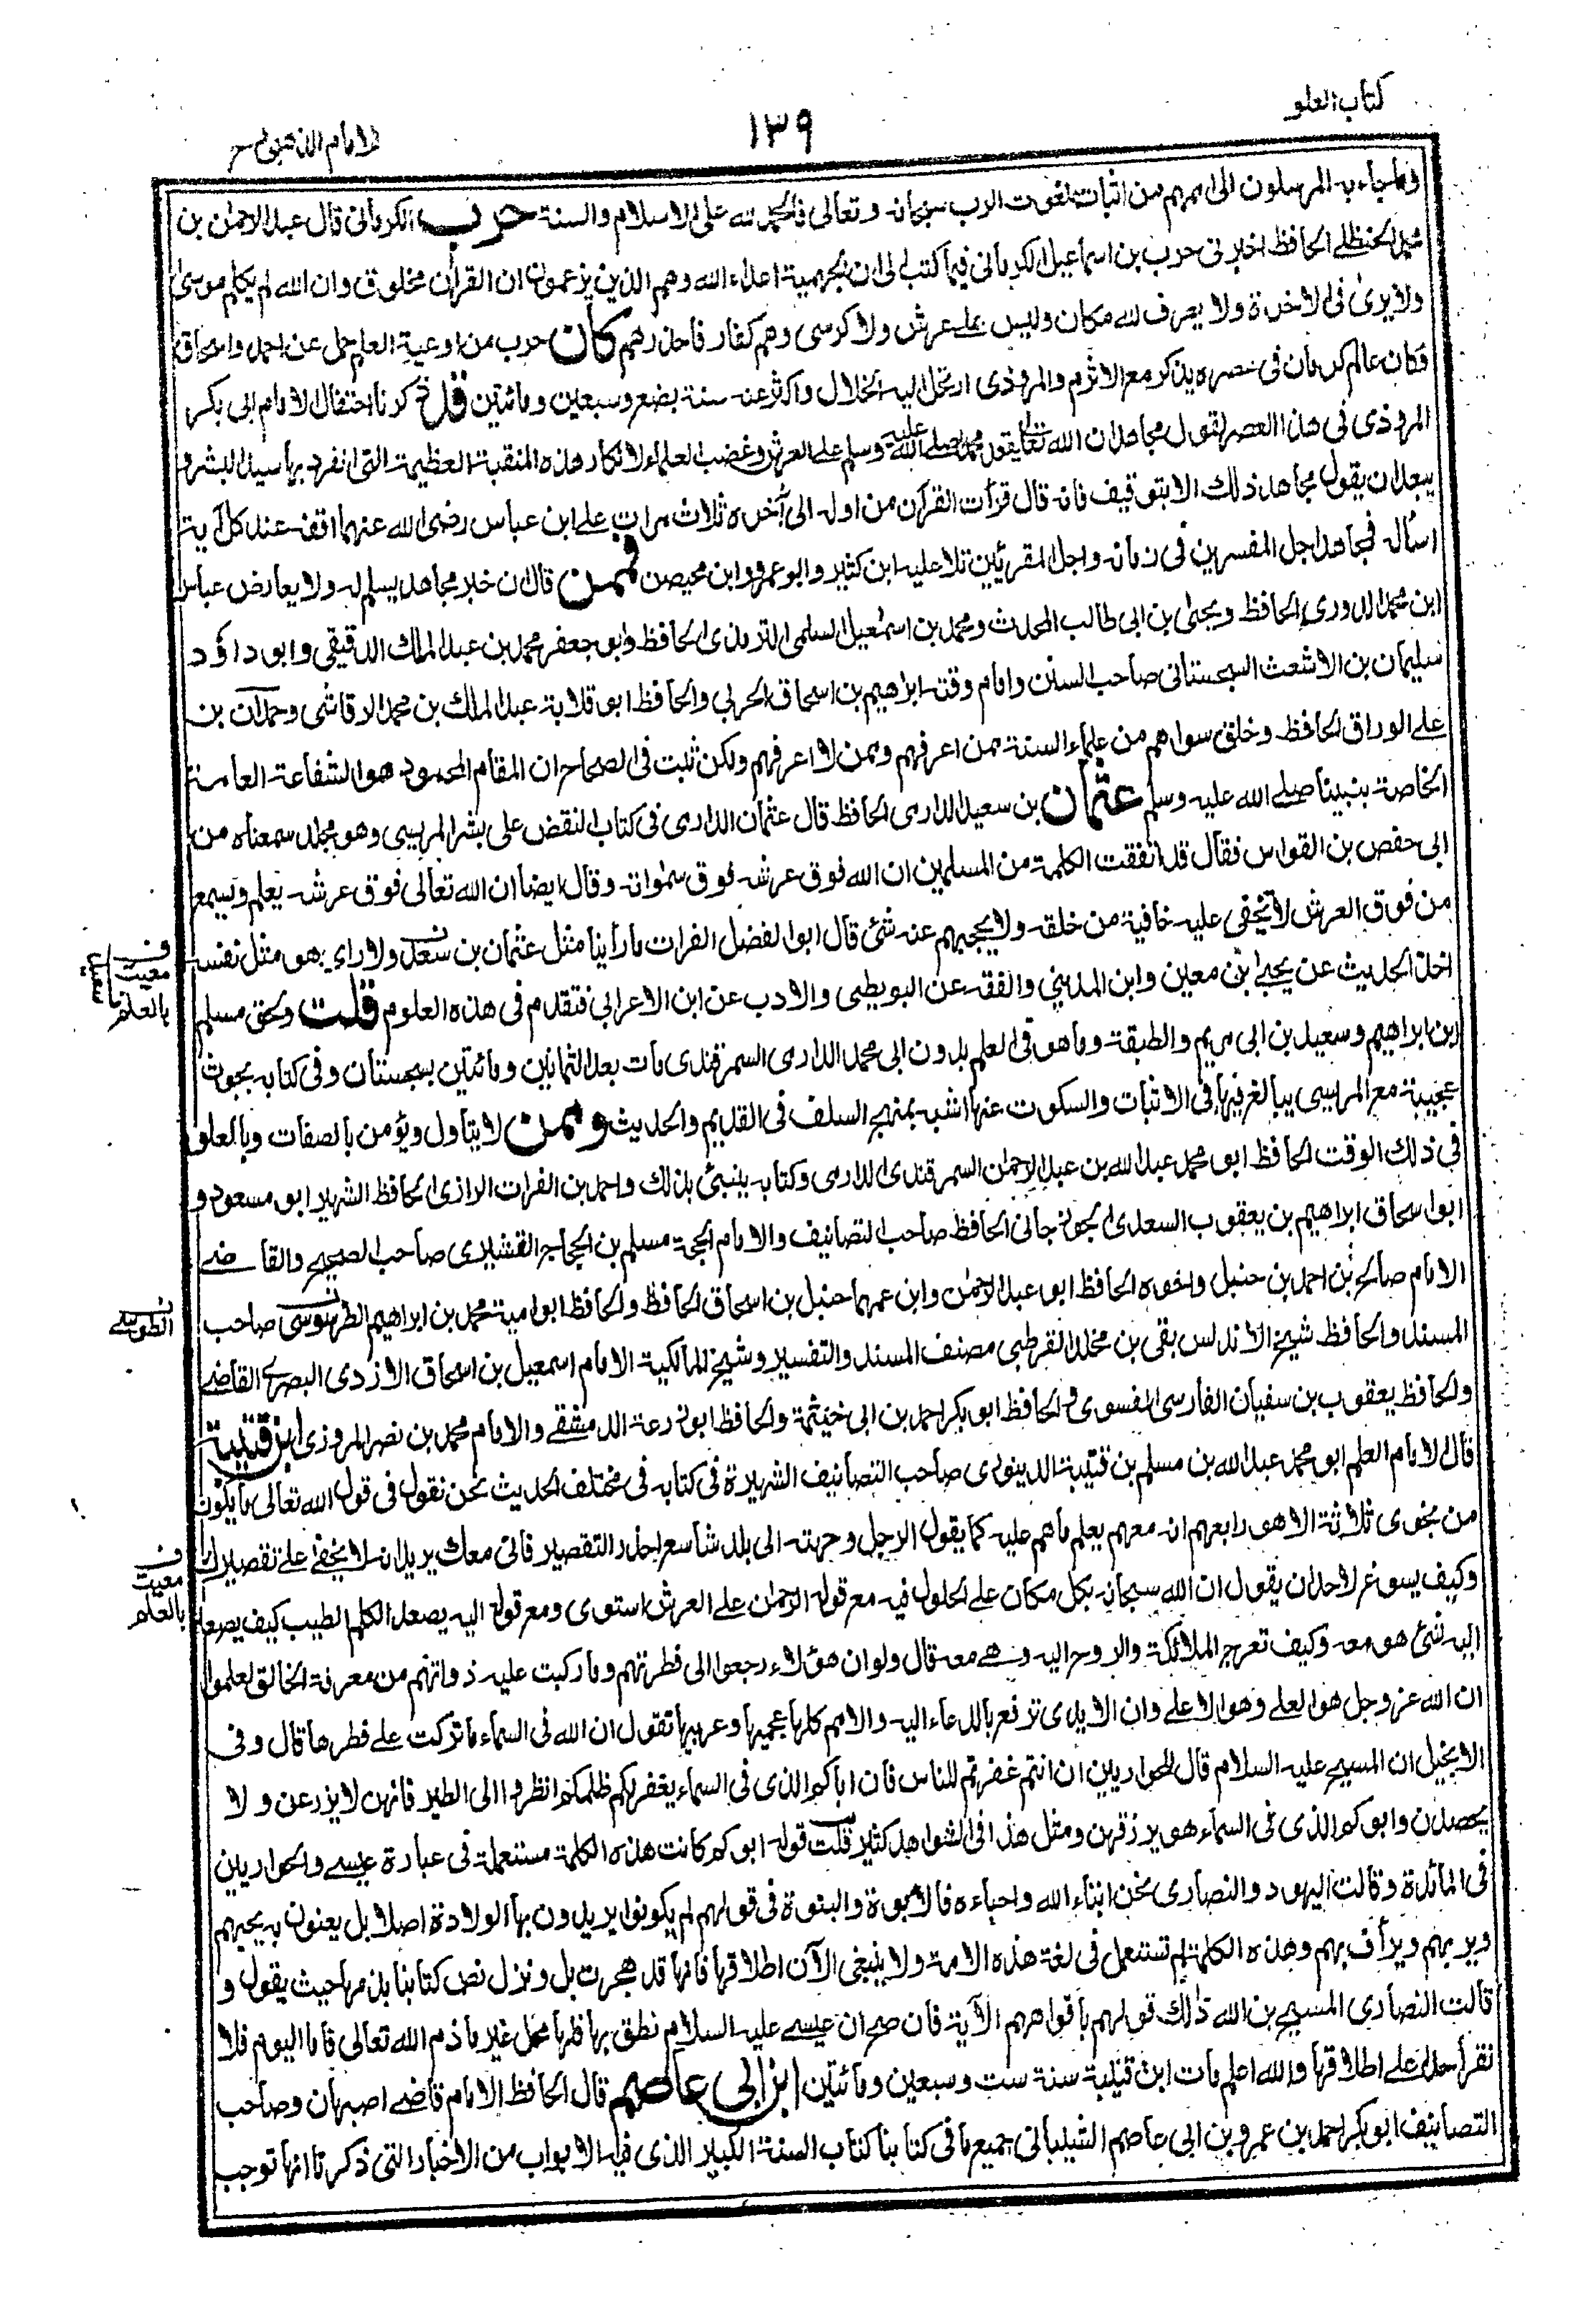 كتاب العلو
١٣٩
للامام الذهبي
وما جاء به المرسلون الى اممهم من اثبات نعوت الرب سبحانه وتعالى فالحمد لله على الاسلام والسنة حرب الكرمانى قال عبد الرحمٰن بن
محمد الحنظلے الحافظ اخبرنى حرب بن اسماعيل الكرمانى فيما كتب الى ان الجهمية اعداء الله وهم الذين يزعمون ان القرآن مخلوق وان الله لم يكلم موسىٰ
ولا يرىٰ فى الاخرة ولا يعرف لله مكان وليس علے عرش ولا كرسى وهم كفار فاحذرهم كان حرب من اوعية العلم حمل عن احمد واسحاق
فكان عالم كرمان فى عصره يذكر مع الاثرم والمروذى ارتحل اليه الخلال واكثر عنه سنة بضع وسبعين ومائتين قلت ذكرنا احتفال الامام ابى بكر
المروذى فى هذا العصر لقول مجاهد ان الله تعالى يقعد محمدا صلے الله عليه وسلم علے العرش وغضب العلماء لانكار هذه المنقبة العظيمة التى انفرد بها سيد البشر و
يبعد ان يقول مجاهد ذلك الا بتوقيف فانه قال قرأت القرآن من اوله الى آخره ثلاث مرات علے ابن عباس رضى الله عنهما اقفه عند كل آية
اسأله فمجاهد اجل المفسرين فى زمانه واجل المقرئين تلا عليه ابن كثير وابو عمرو وابن محيصن فممن قال ان خبر مجاهد يسلم له ولا يعارض عباس
ابن محمد الدورى الحافظ ويحيىٰ بن ابى طالب المحدث ومحمد بن اسمٰعيل السلمى الترمذى الحافظ وابو جعفر محمد بن عبد الملك الدقيقى وابو داؤد
سليمان بن الاشعث السجستانى صاحب السنن وامام وقته ابراهيم بن اسحاق الحربى والحافظ ابو قلابة عبد الملك بن محمد الرقاشى وحمدان بن
علے الوراق الحافظ وخلق سواهم من علماء السنة ممن اعرفهم وممن لا اعرفهم ولكن ثبت فى الصحاح ان المقام المحمود هو الشفاعة العامة
الخاصة بنبينا صلے الله عليه وسلم عثمان بن سعيد الدارمى الحافظ قال عثمان الدارمى فى كتاب النقض على بشر المريسى وهو مجلد سمعناه من
ابى حفص بن القواس فقال قد اتفقت الكلمة من المسلمين ان الله فوق عرشه فوق سمٰواته وقال ايضا ان الله تعالى فوق عرشه يعلم ويسمع
من فوق العرش لا تخفى عليه خافية من خلقه ولا يحجبهم عنه شئ قال ابو الفضل الفرات ما رأينا مثل عثمان بن سعد ولا راءى هو مثل نفسه
اخذ الحديث عن يحيےٰ بن معين وابن المدينى والفقه عن البويطى والادب عن ابن الاعرابى فتقدم فى هذه العلوم قلت ولحق مسلم
بن ابراهيم وسعيد بن ابى مريم والطبقة وما هو فى العلم بدون ابى محمد الدارمى السمرقندى مات بعد الثمانين ومائتين بسجستان وفى كتابه بحوث
عجيبة مع المريسى يبالغ فيها فى الاثبات والسكوت عنها اشبه بمنهج السلف فى القديم والحديث وممن لا يتأول ويؤمن بالصفات وبالعلو
فى ذلك الوقت الحافظ ابو محمد عبد الله بن عبد الرحمٰن السمرقندى الدارمى وكتابه ينبئ بذلك واحمد بن الفرات الرازى الحافظ الشهير ابو مسعود و
ابو اسحاق ابراهيم بن يعقوب السعدى الجوزجانى الحافظ صاحب التصانيف والامام الحجة مسلم بن الحجاج القشيرى صاحب الصحيح والقاضے
الامام صالح بن احمد بن حنبل واخوه الحافظ ابو عبد الرحمٰن وابن عمهما حنبل بن اسحاق الحافظ والحافظ ابو امية محمد بن ابراهيم الطرسوسى صاحب
المسند والحافظ شيخ الاندلس بقى بن مخلد القرطبى مصنف المسند والتفسير وشيخ المالكية الامام اسمعيل بن اسحاق الازدى البصرى القاضے
والحافظ يعقوب بن سفيان الفارسى الفسوى والحافظ ابو بكر احمد بن ابى خيثمة والحافظ ابو زرعة الدمشقے والامام محمد بن نصر المروزى ابن قتيبة
قال الامام العلم ابو محمد عبد الله بن مسلم بن قتيبة الدينورى صاحب التصانيف الشهيرة فى كتابه فى مختلف الحديث نحن نقول فى قول الله تعالى ما يكون
من نجوى ثلاثة الا هو رابعهم انه معهم يعلم ما هم عليه كما يقول الرجل وجهته الى بلد شاسع احذر التقصير فانى معك يريد انه لا يخفےٰ علے تقصيرك
وكيف يسوغ لاحد ان يقول ان الله سبحانه بكل مكان علے الحلول فيه مع قوله الرحمٰن علے العرش استوى ومع قوله اليه يصعد الكلم الطيب كيف يصعد
اليه شئ هو معه وكيف تعرج الملائكة والروح اليه وهے معه قال ولو ان هؤلاء رجعوا الى فطرتهم وما ركبت عليه ذواتهم من معرفة الخالق لعلموا
ان الله عز وجل هو العلے وهو الاعلے وان الايدى ترفع بالدعاء اليه والامم كلها عجميها وعربيها تقول ان الله فى السماء ما تركت علے فطرها قال وفى
الانجيل ان المسيح عليه السلام قال للحواريين ان انتم غفرتم للناس فان اباكم الذى فى السماء يغفر لكم ظلمكم انظروا الى الطير فانهن لا يزرعن ولا
يحصدن وابوكم الذى فى السماء هو يرزقهن ومثل هذا فى الشواهد كثير قلت قوله ابوكم كانت هذه الكلمة مستعملة فى عبارة عيسے والحواريين
فى المائدة وقالت اليهود والنصارى نحن ابناء الله واحباءه فالابوة والبنوة فى قولهم لم يكونوا يريدون بها الولادة اصلا بل يعنون به يحبهم
ويربهم ويرأف بهم وهذه الكلمة لم تستعمل فى لغة هذه الامة ولا ينبغى الآن اطلاقها فانها قد هجرت بل ونزل نص كتابنا بذمها حيث يقول و
قالت النصارى المسيح بن الله ذلك قولهم بافواههم الآية فان صح ان عيسے عليه السلام نطق بها فلها محمل غير ما ذم الله تعالى فاما اليوم فلا
نقر احدا علے اطلاقها والله اعلم مات ابن قتيبة سنة ست وسبعين ومائتين ابن ابى عاصم قال الحافظ الامام قاضے اصبهان وصاحب
التصانيف ابو بكر احمد بن عمرو بن ابى عاصم الشيبانى جميع ما فى كتابنا كتاب السنة الكبير الذى فيه الابواب من الاخبار التى ذكرنا انها توجب
ف
معيت
بالعلم
سعيد
الطوسے
ف
معيت
بالعلم